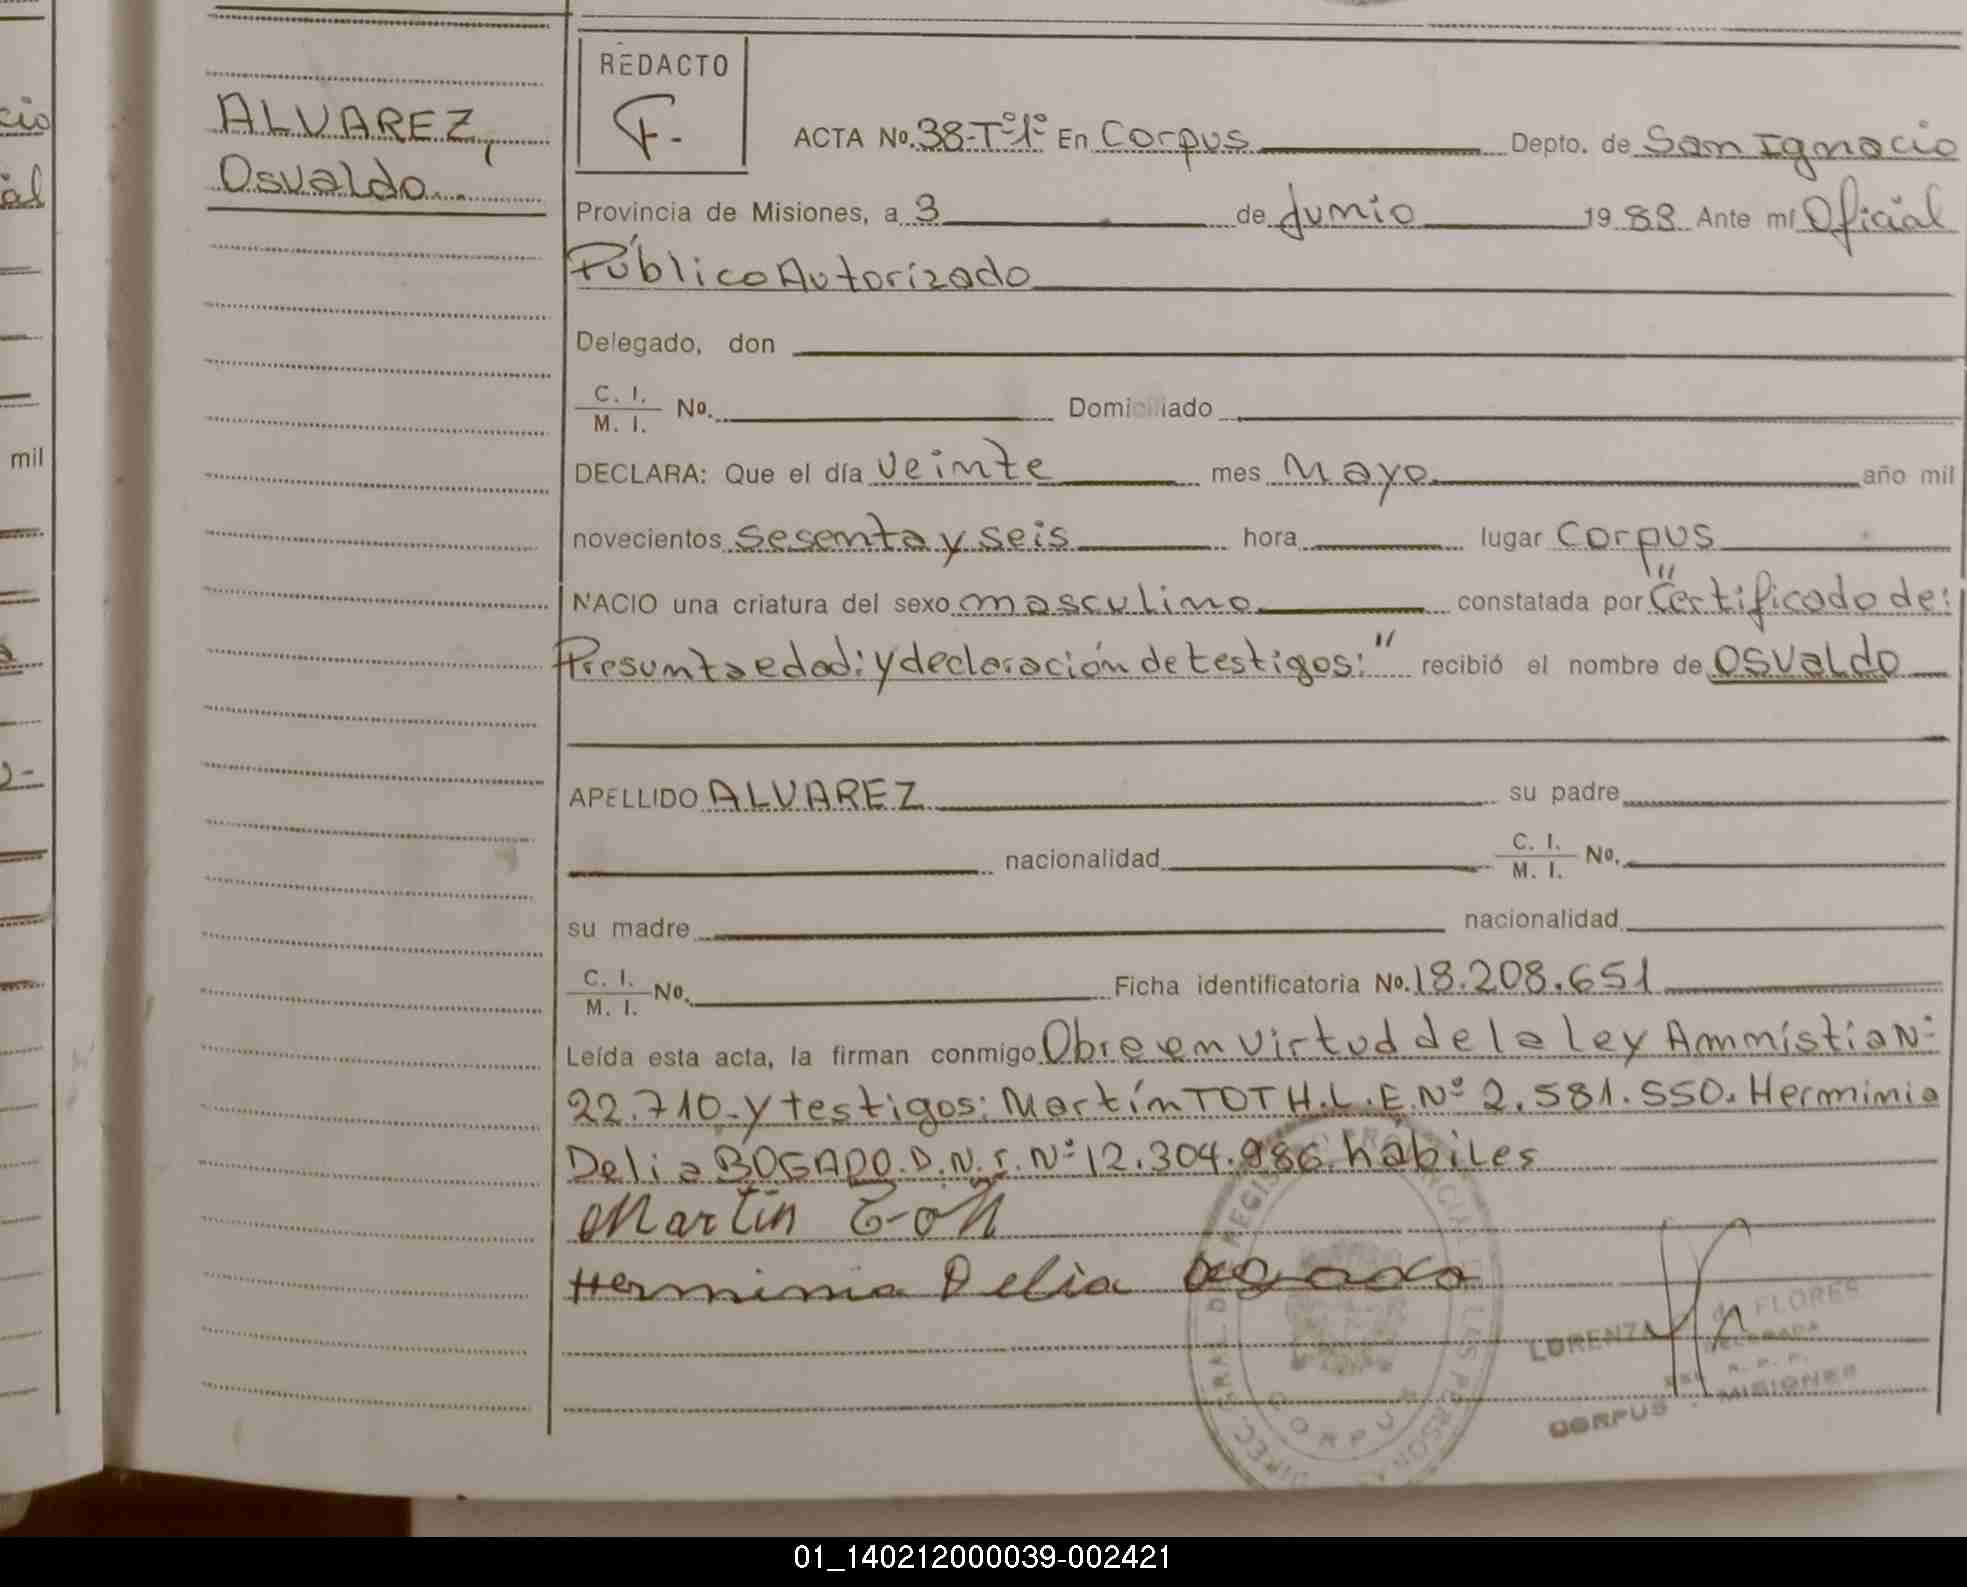 cio
al
mil
ALVAREZ,
Osvaldo
REDACTO
F.-
ACTA No. 38-Tº1º En Corpus Depto. de San Ignacio
Provincia de Misiones, a 3 de Junio 1988 Ante mí Oficial
Público Autorizado
Delegado, don
C. I.
M. I. No. Domiciliado
DECLARA: Que el día veinte mes Mayo año mil
novecientos sesenta y seis hora lugar Corpus
NACIO una criatura del sexo masculino constatada por "Certificado de:
Presunta edad: y declaración de testigos:" recibió el nombre de OSVALDO
APELLIDO ALVAREZ su padre
nacionalidad C. I.
M. I. No.
su madre nacionalidad
C. I.
M. I. No. Ficha identificatoria No. 18.208.651
Leída esta acta, la firman conmigo Obre en virtud de la ley Ammistia Nº
22.710.- y testigos: Martín TOTH.L.E.Nº 2.581.550. Herminia
Delia BOGADO.D.N.I.Nº 12.304.986. hábiles
Martin Toth
Herminia Delia Bogado
LORENZA de FLORES
DELEGADA
R. P. P.
CORPUS - MISIONES
DIREC. GRAL. DE REGISTRO PROVINCIAL DE LAS PERSONAS
CORPUS
01_140212000039-002421